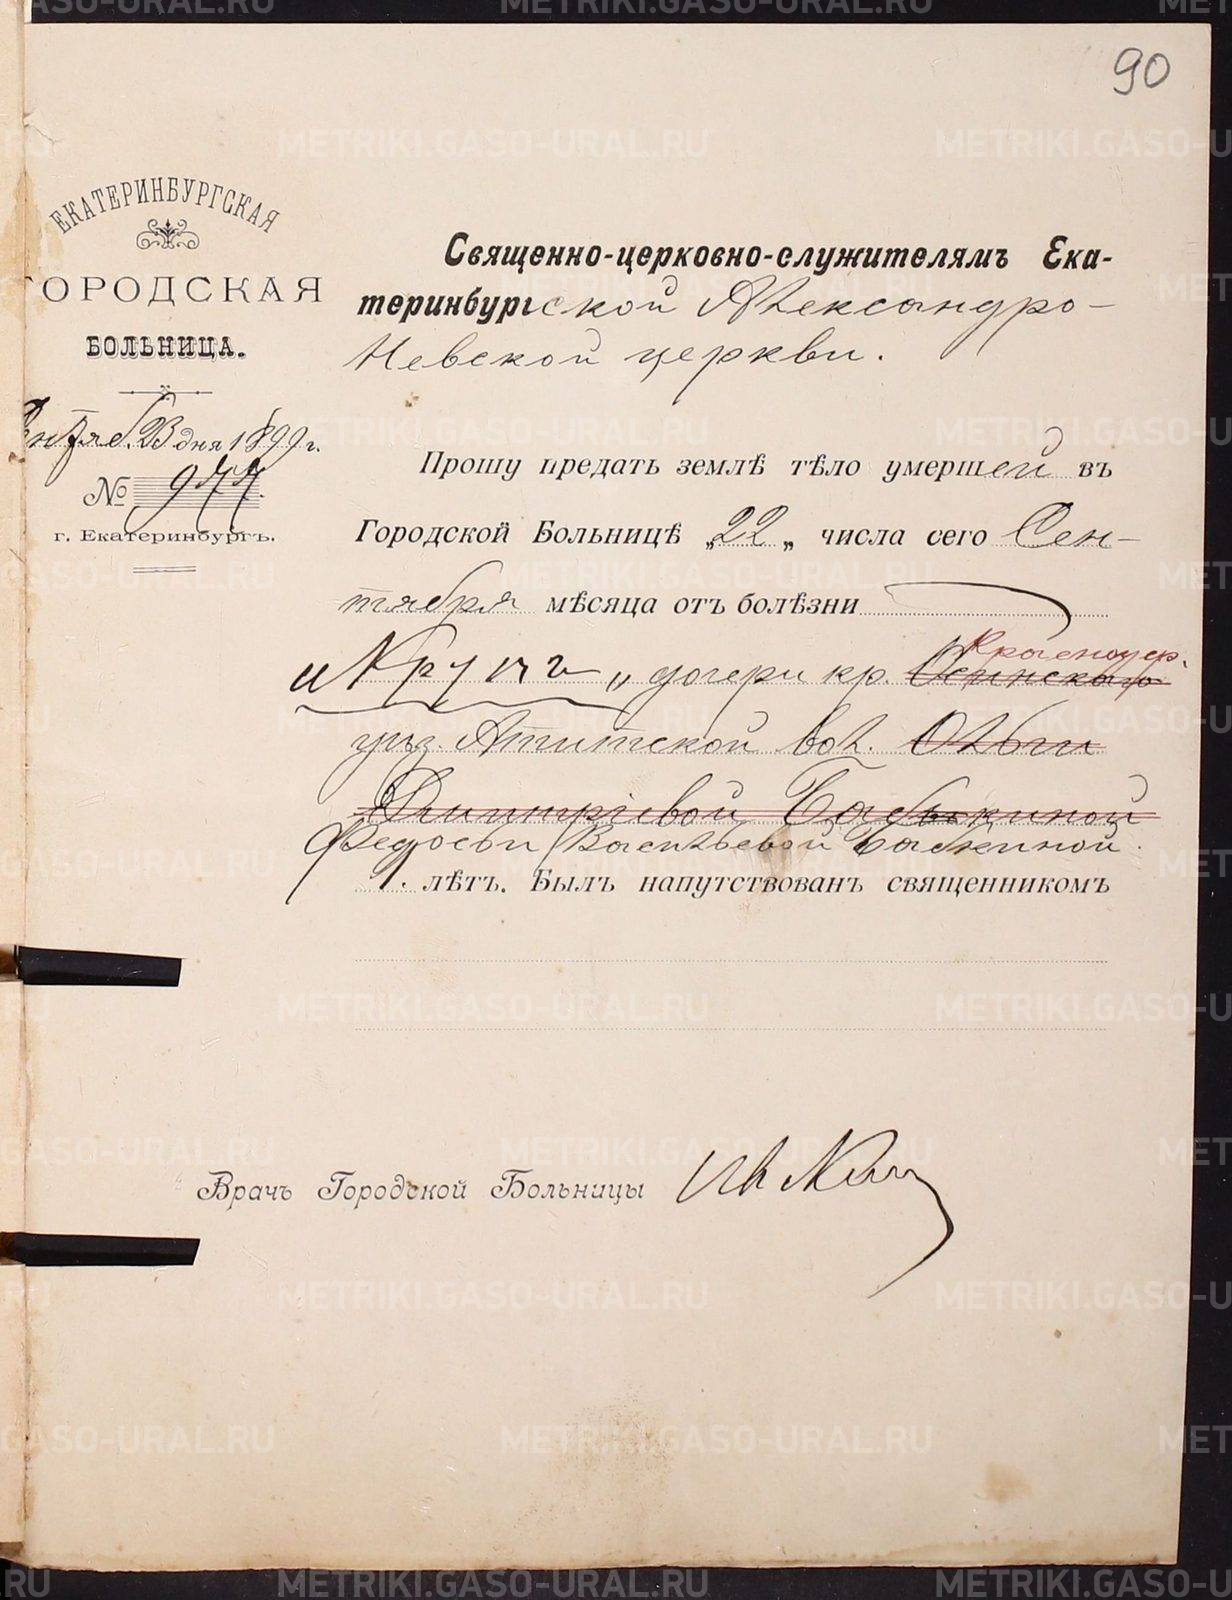 90
ЕКАТЕРИНБУРГСКАЯ
ГОРОДСКАЯ
БОЛЬНИЦА.
Сентяб. 23 дня 1899 г.
№ 977.
г. Екатеринбургъ.
Священно-церковно-служителямъ Ека-
теринбургской Александро-
Невской церкви.
Прошу предать землѣ тѣло умершей въ
Городской Больницѣ „22„ числа сего Сен-
тября мѣсяца отъ болѣзни
„Крупъ„ дочери кр. Осинскаго Красноуф.
уѣз. Ачитской вол. Ольги
Дмитріевой Бабкиной
Федосьи Васильевой Бабкиной.
1. лѣтъ. Былъ напутствованъ священникомъ
Врачъ Городской Больницы
METRIKI.GASO-URAL.RU